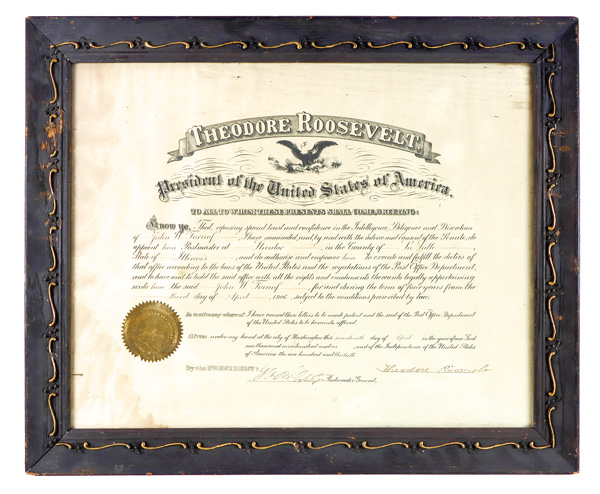 THEODORE ROOSEVELT,
President of the United States of America,
TO ALL TO WHOM THESE PRESENTS SHALL COME, GREETING:
Know ye, That, reposing special trust and confidence in the Intelligence, Diligence and Discretion
of John W. I have nominated, and, by and with the advice and consent of the Senate, do
appoint him Postmaster at Streator, in the County of La Salle
State of Illinois, and do authorize and empower him to execute and fulfil the duties of
that office according to the laws of the United States and the regulations of the Post Office Department,
and to have and to hold the said office with all the rights and emoluments thereunto legally appertaining
unto him the said John W. for and during the term of four years from the
third day of April, subject to the conditions prescribed by law.
In testimony whereof I have caused these letters to be made patent and the seal of the Post Office Department
of the United States to be hereunto affixed.
Given under my hand at the city of Washington this day of April in the year of our Lord
one thousand nine hundred and and of the Independence of the United States
of America the one hundred and thirtieth.
By the PRESIDENT:
Postmaster General.
Theodore Roosevelt